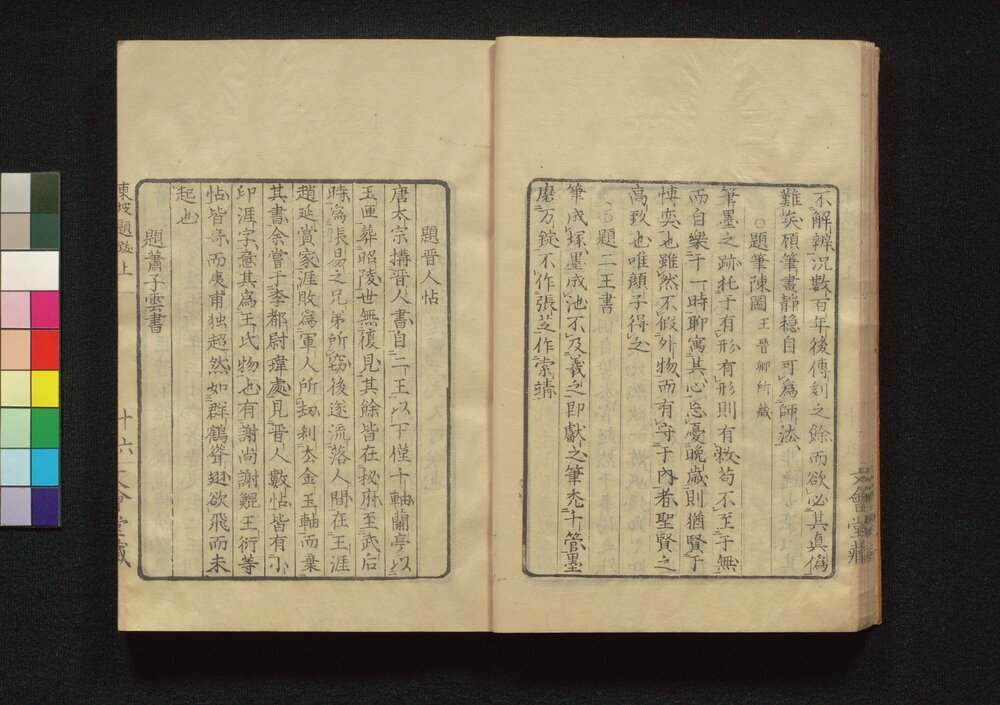 不解辨况數百年後傳刻之餘而欲必其真偽
難矣碩筆畫靜穏自可為師法
○題筆陳圖 王晉卿所藏
筆墨之跡托于有形有形則有敝苟不至于無
而自樂于一時聊寓其心忘憂晚歲則猶賢于
博奕也雖然不假外物而有守于内者聖賢之
高致也唯顏子得之
○題二王書
筆成塚墨成池不及羲之即獻之筆禿千管墨
磨万錠不作張芝作索靖
題晋人帖
唐太宗搆晋人書自二王以下僅千軸蘭亭以
玉匣葬昭陵世無復見其餘皆在秘府至武后
時為張易之兄弟所窃後遂流落人間在王涯
趙延賞家涯敗為軍人所刼利去金玉軸而棄
其書余嘗于李都尉瑋處見晋人數帖皆有小
印涯字意其為王氏物也有謝尚謝鯤王衍等
帖皆奇而夷甫独超然如群鶴聳翅欲飛而未
起也
題蕭子雲書
東坡題跋上
十六
文會堂藏
文會堂藏